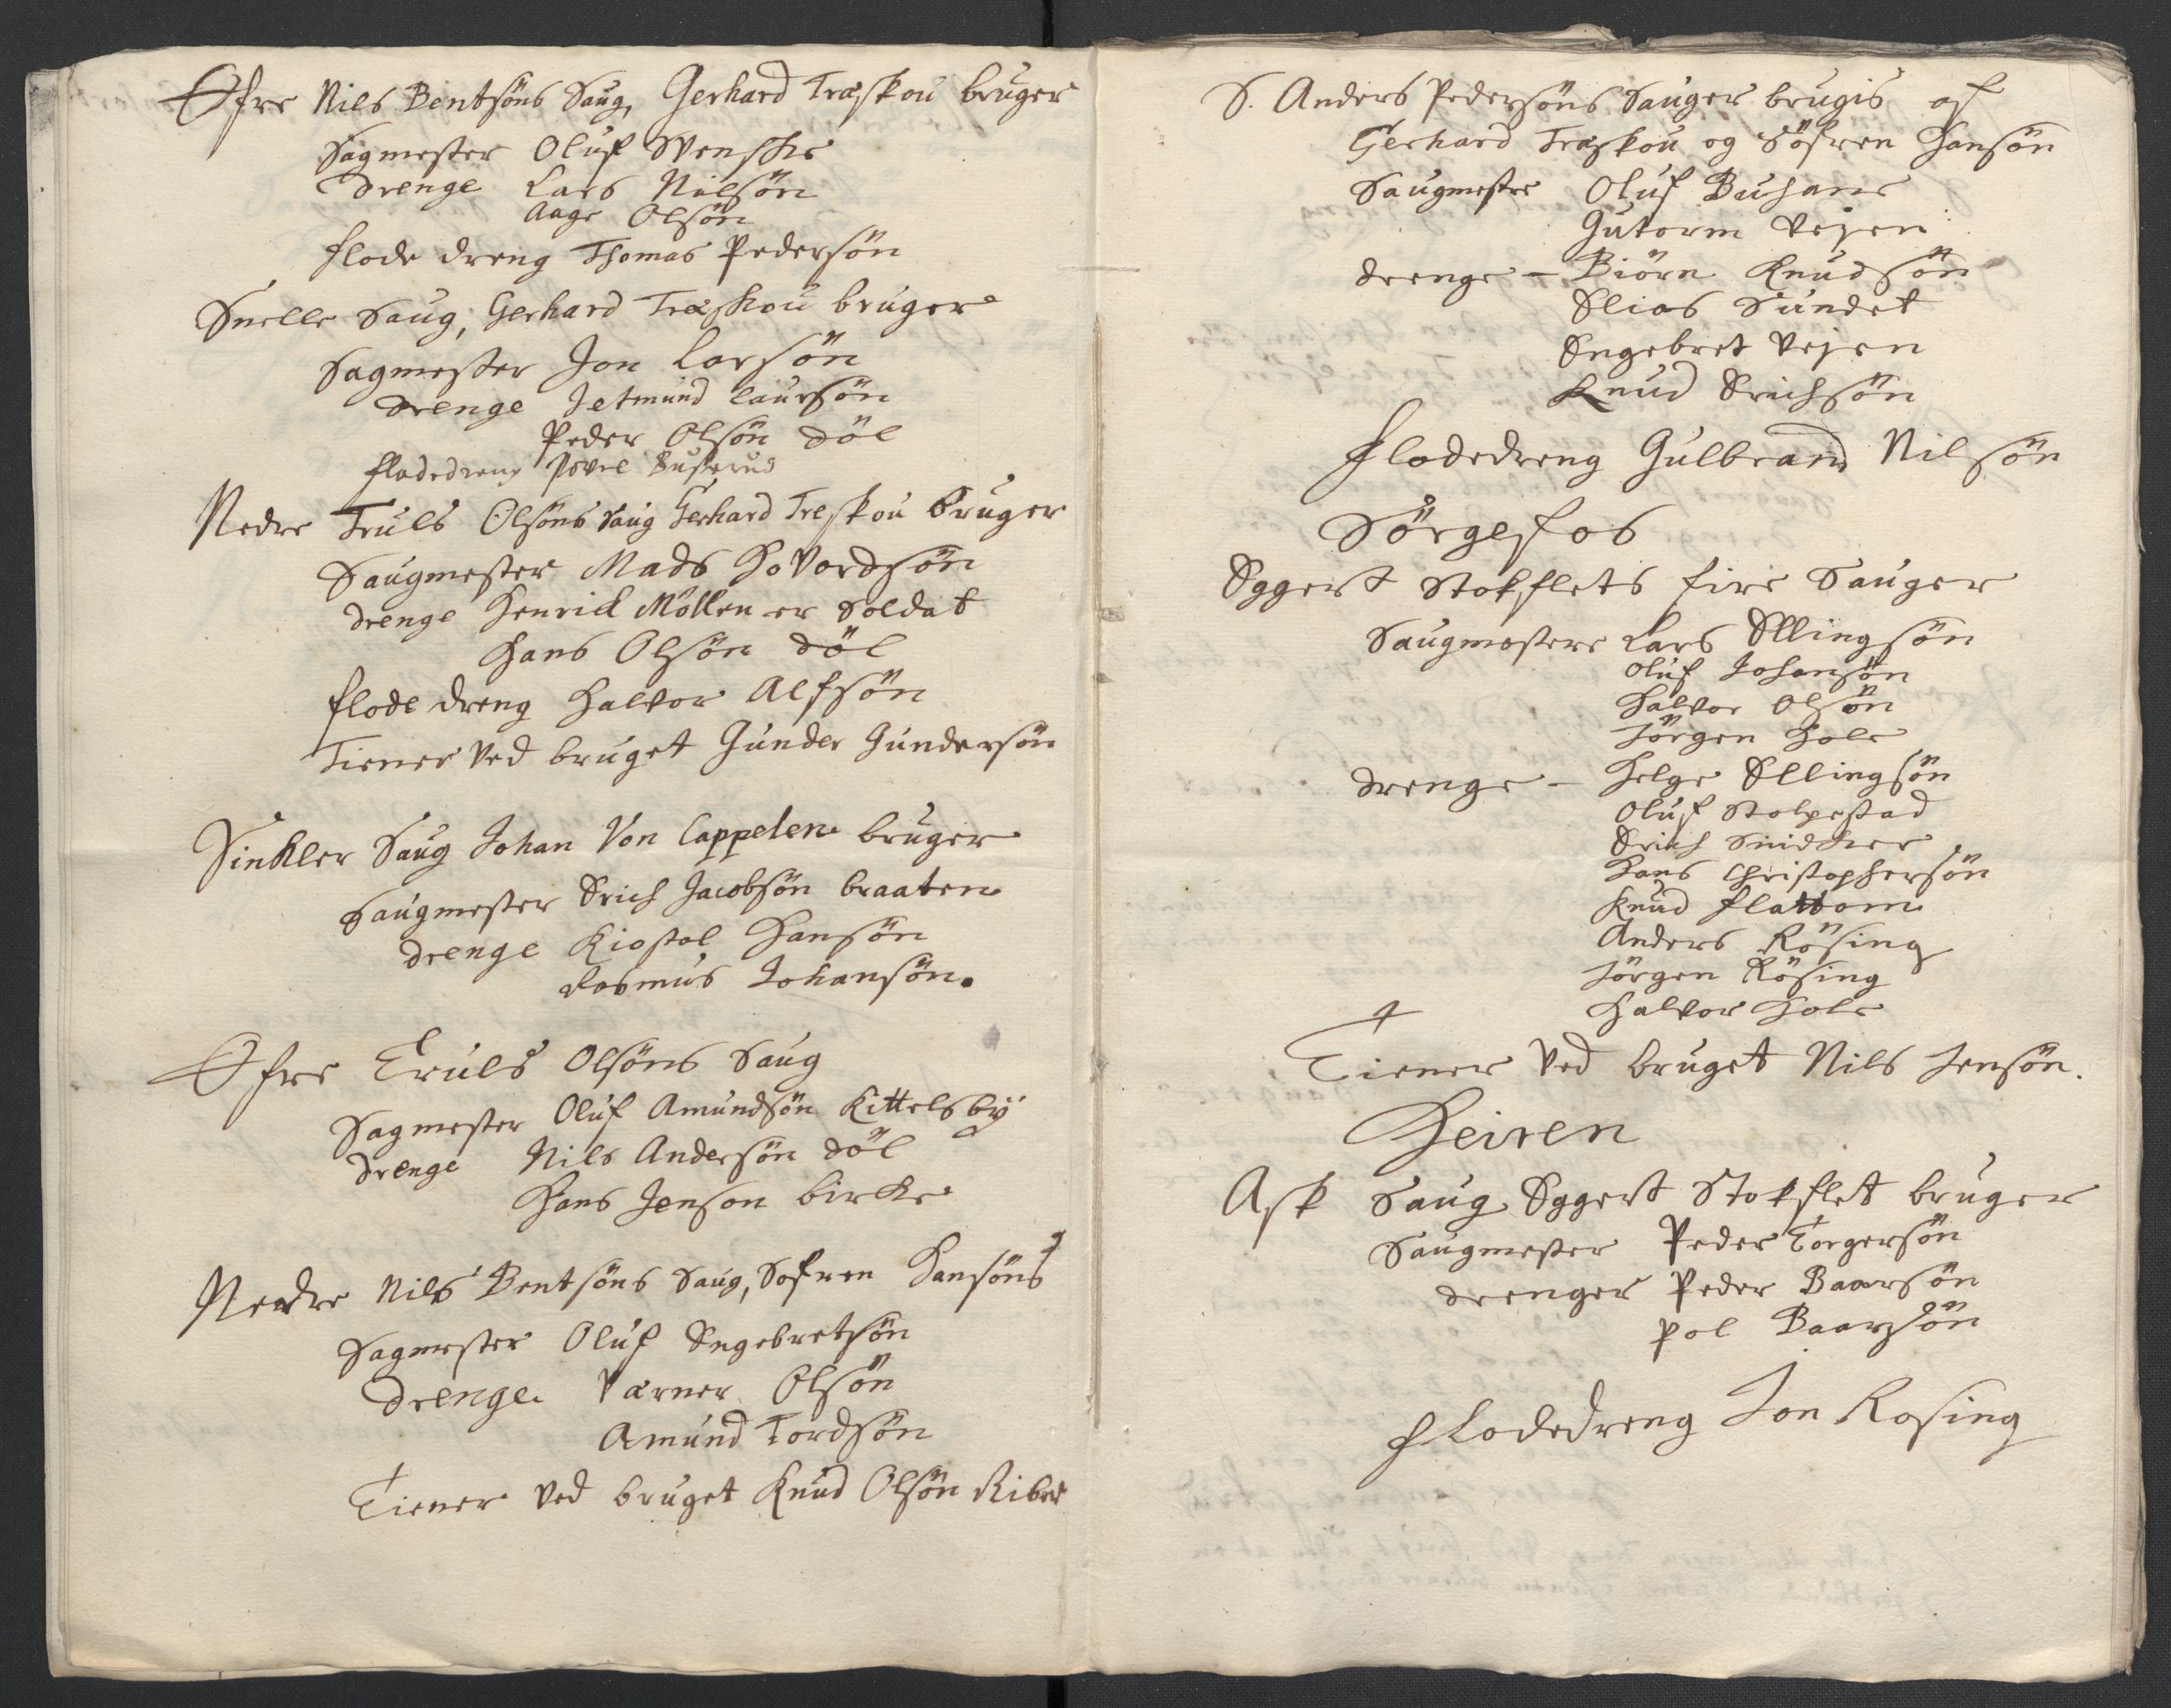 Øfre Nils Bentsöns Saug, Gerhard Træskou bruger
Sagmester Oluf Svenske
Drenge Lars Nilsön
Aage Olsön
flode dreng Thomas Pedersön
Snelle Saug, Gerhard Træskou bruger
Sagmester Jon Larsön
Drenge Jetmund Laursön
Peder Olsön Döl
flodedreng Povel Buserud
Nedre Truls Olsöns Saug Gerhard Treskou bruger
Saugmester Mads Hovordsön
Drenge Henrick Möllen er Soldat
Hans Olsön Döl
flode dreng Halvor Alfsön
Tiener Ved bruget Gunder Gundersön
Sinkler Saug Johan Von Cappelen bruger
Saugmester Erich Jacobsön braaten
Drenge Kiostol Hansön
Rasmus Johansön.
Øfre Truls Olsöns Saug
Sagmester Oluf Amundsön Kittelsby
Drenge Nils Andersön Döl
Hans Jenson birke
Nedre Nils Bentsöns Saug, Sofren Hansöns
Sagmester Oluf Engebretsön
Drenge Værner Olsön
Amund Tordsön
Tiener Ved bruget Knud Olsön Riber
S. Anders Pedersöns Sauger brugis af
Gerhard Træskou og Söfren Hansön
Saugmestre Oluf Buhans
Gutorm Veien
Drenge - Biörn Knudsön
Elias Sundet
Engebret Veien
Knud Erichsön
flodedreng Gulbrand Nilsön
Sörgefos
Eggert Stokflets fire Sauger
Saugmestere Lars Ellingsön
Oluf Johansön
Halvor Olsön
Jörgen Hole
Drenge - Helge Ellingsön
Oluf Stolpestad
Erich Snidker
Hans Christophersön
Knud Flattom
Anders Rösing
Jörgen Rösing
Halvor Hole
Tiener Ved bruget Nils Jensön.
Heiren
Ask Saug Eggert Stokflet bruger
Saugmester Peder Torgersön
Drenger Peder Baarsön
Pol Baarsön
flodedreng Jon Rosing